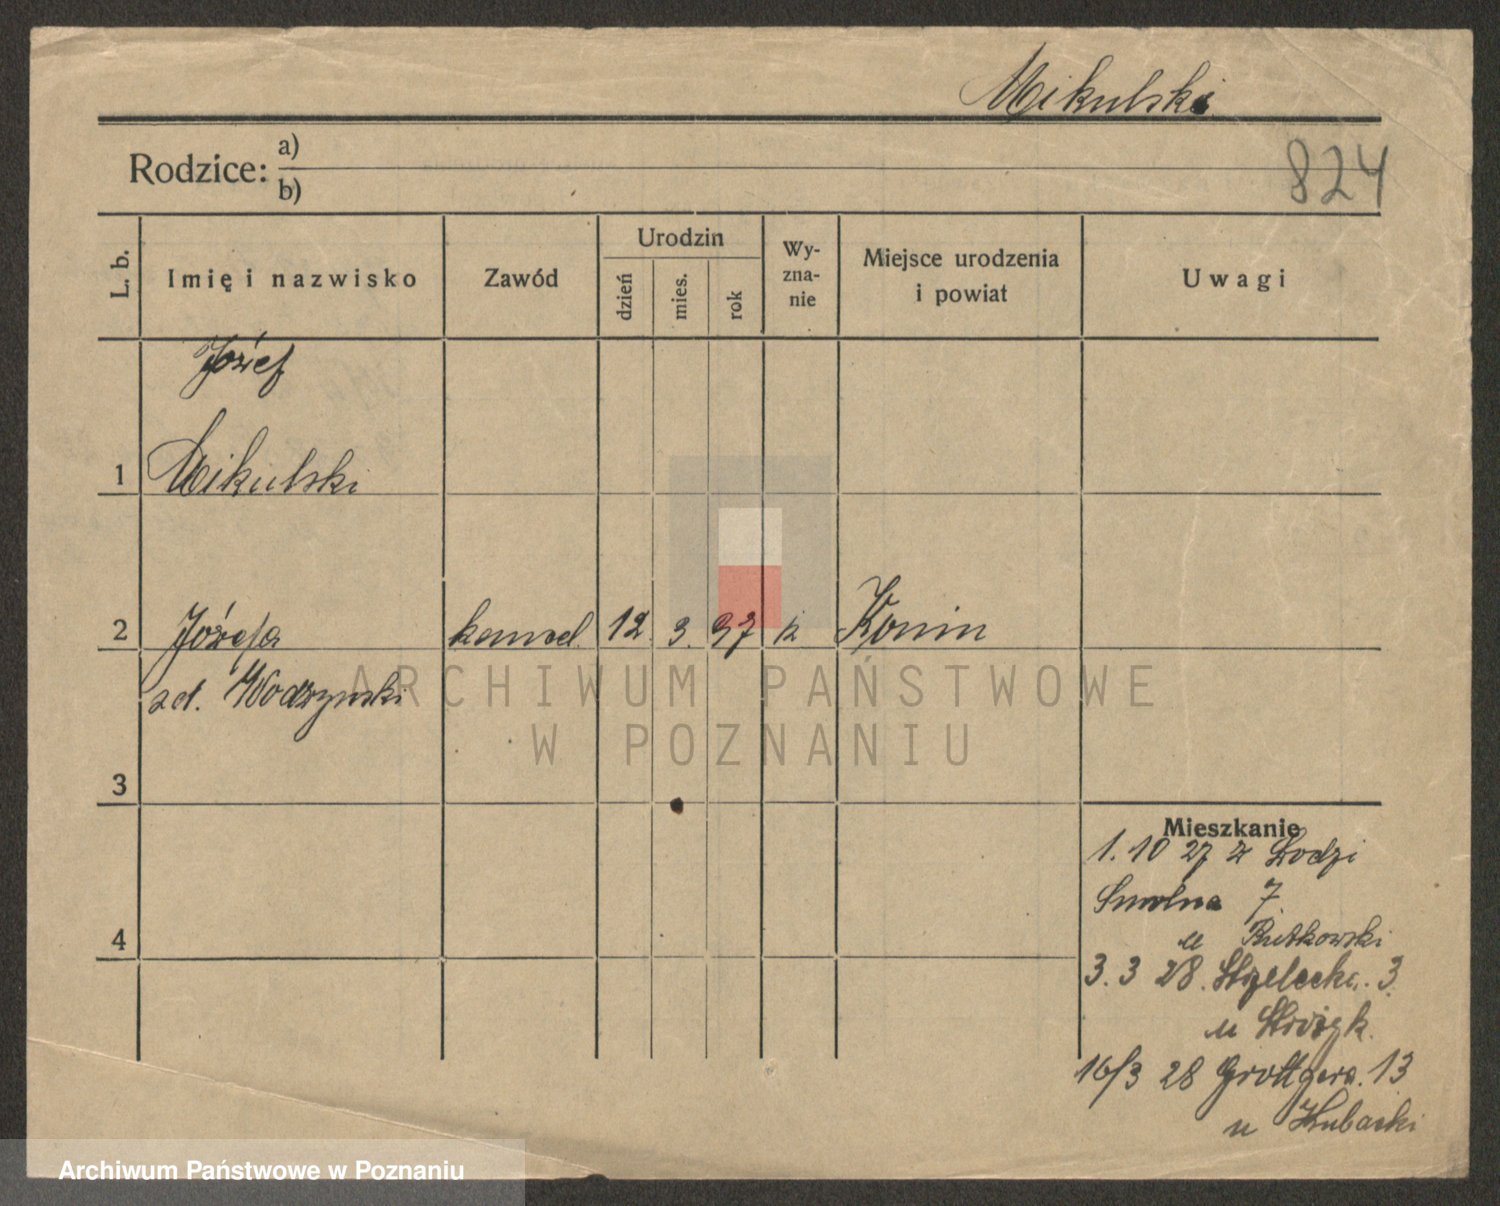 Mikulski
824
Rodzice: a)
b)
L. b.
Imię i nazwisko
Zawód
Urodzin
dzień
mies.
rok
Wy-
zna-
nie
Miejsce urodzenia
i powiat
Uwagi
Józef
1 Mikulski
2 Józefa 12. 3. 97 k Konin
zd. Wodzynski
ARCHIWUM PAŃSTWOWE
W POZNANIU
3
Mieszkanie
1. 10 27 z Łodzi
Smolna 7
u Rutkowski
4
3. 3 28. Strzelecka. 3.
u
16/3 28 Grottgera. 13
u Kubacki
Archiwum Państwowe w Poznaniu